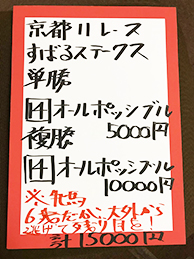 京都11レース
すばるステークス
単勝
14オールポッシブル
5000円
複勝
14オールポッシブル
10000円
※牝馬
6着だがここ大外から
逃げて夕刻り目と!
計15000円